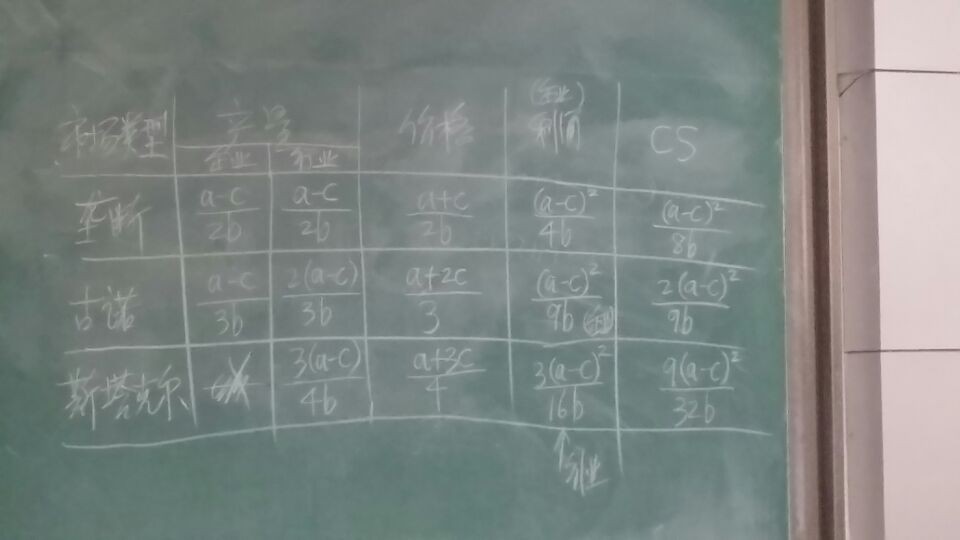 市场类型 产量 价格 (企业)利润 CS
企业 行业
垄断 (a-c)/2b (a-c)/2b (a+c)/2b (a-c)²/4b (a-c)²/8b
古诺 (a-c)/3b 2(a-c)/3b (a+2c)/3 (a-c)²/9b 2(a-c)²/9b
斯塔克尔 3(a-c)/4b (a+3c)/4 3(a-c)²/16b 9(a-c)²/32b
↑行业